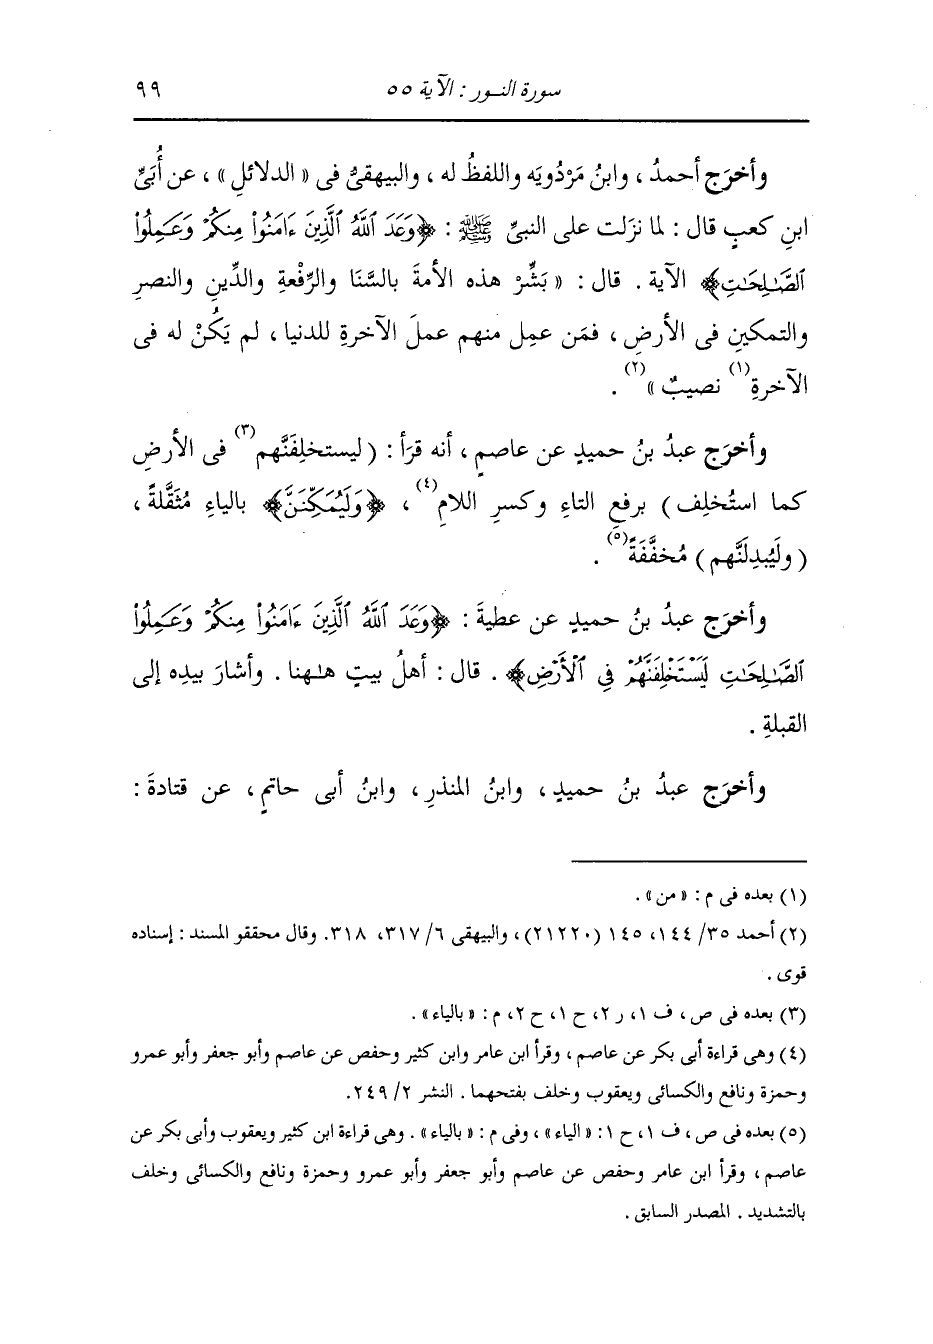 سورة النور : الآية ٥٥
٩٩
وأخرَج أحمدُ ، وابنُ مَرْدُويَه واللفظُ له ، والبيهقىُّ فى « الدلائلِ » ، عن أُبَىِّ
ابنِ كعبٍ قال : لما نزَلت على النبىِّ ﷺ : ﴿وَعَدَ ٱللَّهُ ٱلَّذِينَ ءَامَنُوا۟ مِنكُمْ وَعَمِلُوا۟
ٱلصَّـٰلِحَـٰتِ﴾ الآية . قال : « بَشِّرْ هذه الأمةَ بالسَّنَا والرِّفْعةِ والدِّينِ والنصرِ
والتمكينِ فى الأرضِ ، فمَن عمِل منهم عملَ الآخرةِ للدنيا ، لم يَكُنْ له فى
الآخرةِ(١) نصيبٌ »(٢) .
وأخرَج عبدُ بنُ حميدٍ عن عاصمٍ ، أنه قرَأ : ( ليستخلِفَنَّهم(٣) فى الأرضِ
كما استُخلِف ) برفعِ التاءِ وكسرِ اللامِ(٤) ، ﴿وَلَيُمَكِّنَنَّ﴾ بالياءِ مُثَقَّلةً ،
( ولَيُبدِلَنَّهم ) مُخفَّفَةً(٥) .
وأخرَج عبدُ بنُ حميدٍ عن عطيةَ : ﴿وَعَدَ ٱللَّهُ ٱلَّذِينَ ءَامَنُوا۟ مِنكُمْ وَعَمِلُوا۟
ٱلصَّـٰلِحَـٰتِ لَيَسْتَخْلِفَنَّهُمْ فِى ٱلْأَرْضِ﴾ . قال : أهلُ بيتٍ هلهنا . وأشارَ بيدِه إلى
القبلةِ .
وأخرَج عبدُ بنُ حميدٍ ، وابنُ المنذرِ ، وابنُ أبى حاتمٍ ، عن قتادةَ :
(١) بعده فى م : « من » .
(٢) أحمد ٣٥/ ١٤٤، ١٤٥ (٢١٢٢٠) ، والبيهقى ٦/ ٣١٧، ٣١٨. وقال محققو المسند : إسناده
قوى .
(٣) بعده فى ص ، ف ١، ر ٢، ح ١، ح ٢، م : « بالياء » .
(٤) وهى قراءة أبى بكر عن عاصم ، وقرأ ابن عامر وابن كثير وحفص عن عاصم وأبو جعفر وأبو عمرو
وحمزة ونافع والكسائى ويعقوب وخلف بفتحهما . النشر ٢/ ٢٤٩.
(٥) بعده فى ص ، ف ١، ح ١: « الياء » ، وفى م : « بالياء » . وهى قراءة ابن كثير ويعقوب وأبى بكر عن
عاصم ، وقرأ ابن عامر وحفص عن عاصم وأبو جعفر وأبو عمرو وحمزة ونافع والكسائى وخلف
بالتشديد . المصدر السابق .